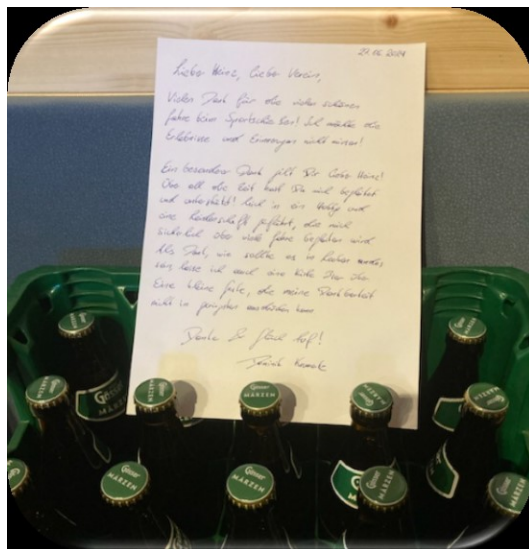 27.06.2024
Lieber Heinz, lieber Verein,
Vielen Dank für die vielen schönen
Jahre beim Sportschießen! Ich möchte die
Erlebnisse und nicht missen!
Ein besonderer Dank gilt Dir lieber Heinz!
Über all die Zeit hast Du mich begleitet
und unterstützt! Mich in ein Hobby und
eine Leidenschaft geführt, die mich
sicherlich über viele Jahre begleiten wird
Als Dank, wie sollte es in anders
sein, lasse ich euch eine Kiste Bier da.
Eine kleine Geste, die meine Dankbarkeit
nicht in ausdrücken kann
Danke & Schuss!
Gösser
MÄRZEN
Gösser
MÄRZEN
Gösser
MÄRZEN
Gösser
MÄRZEN
Gösser
MÄRZEN